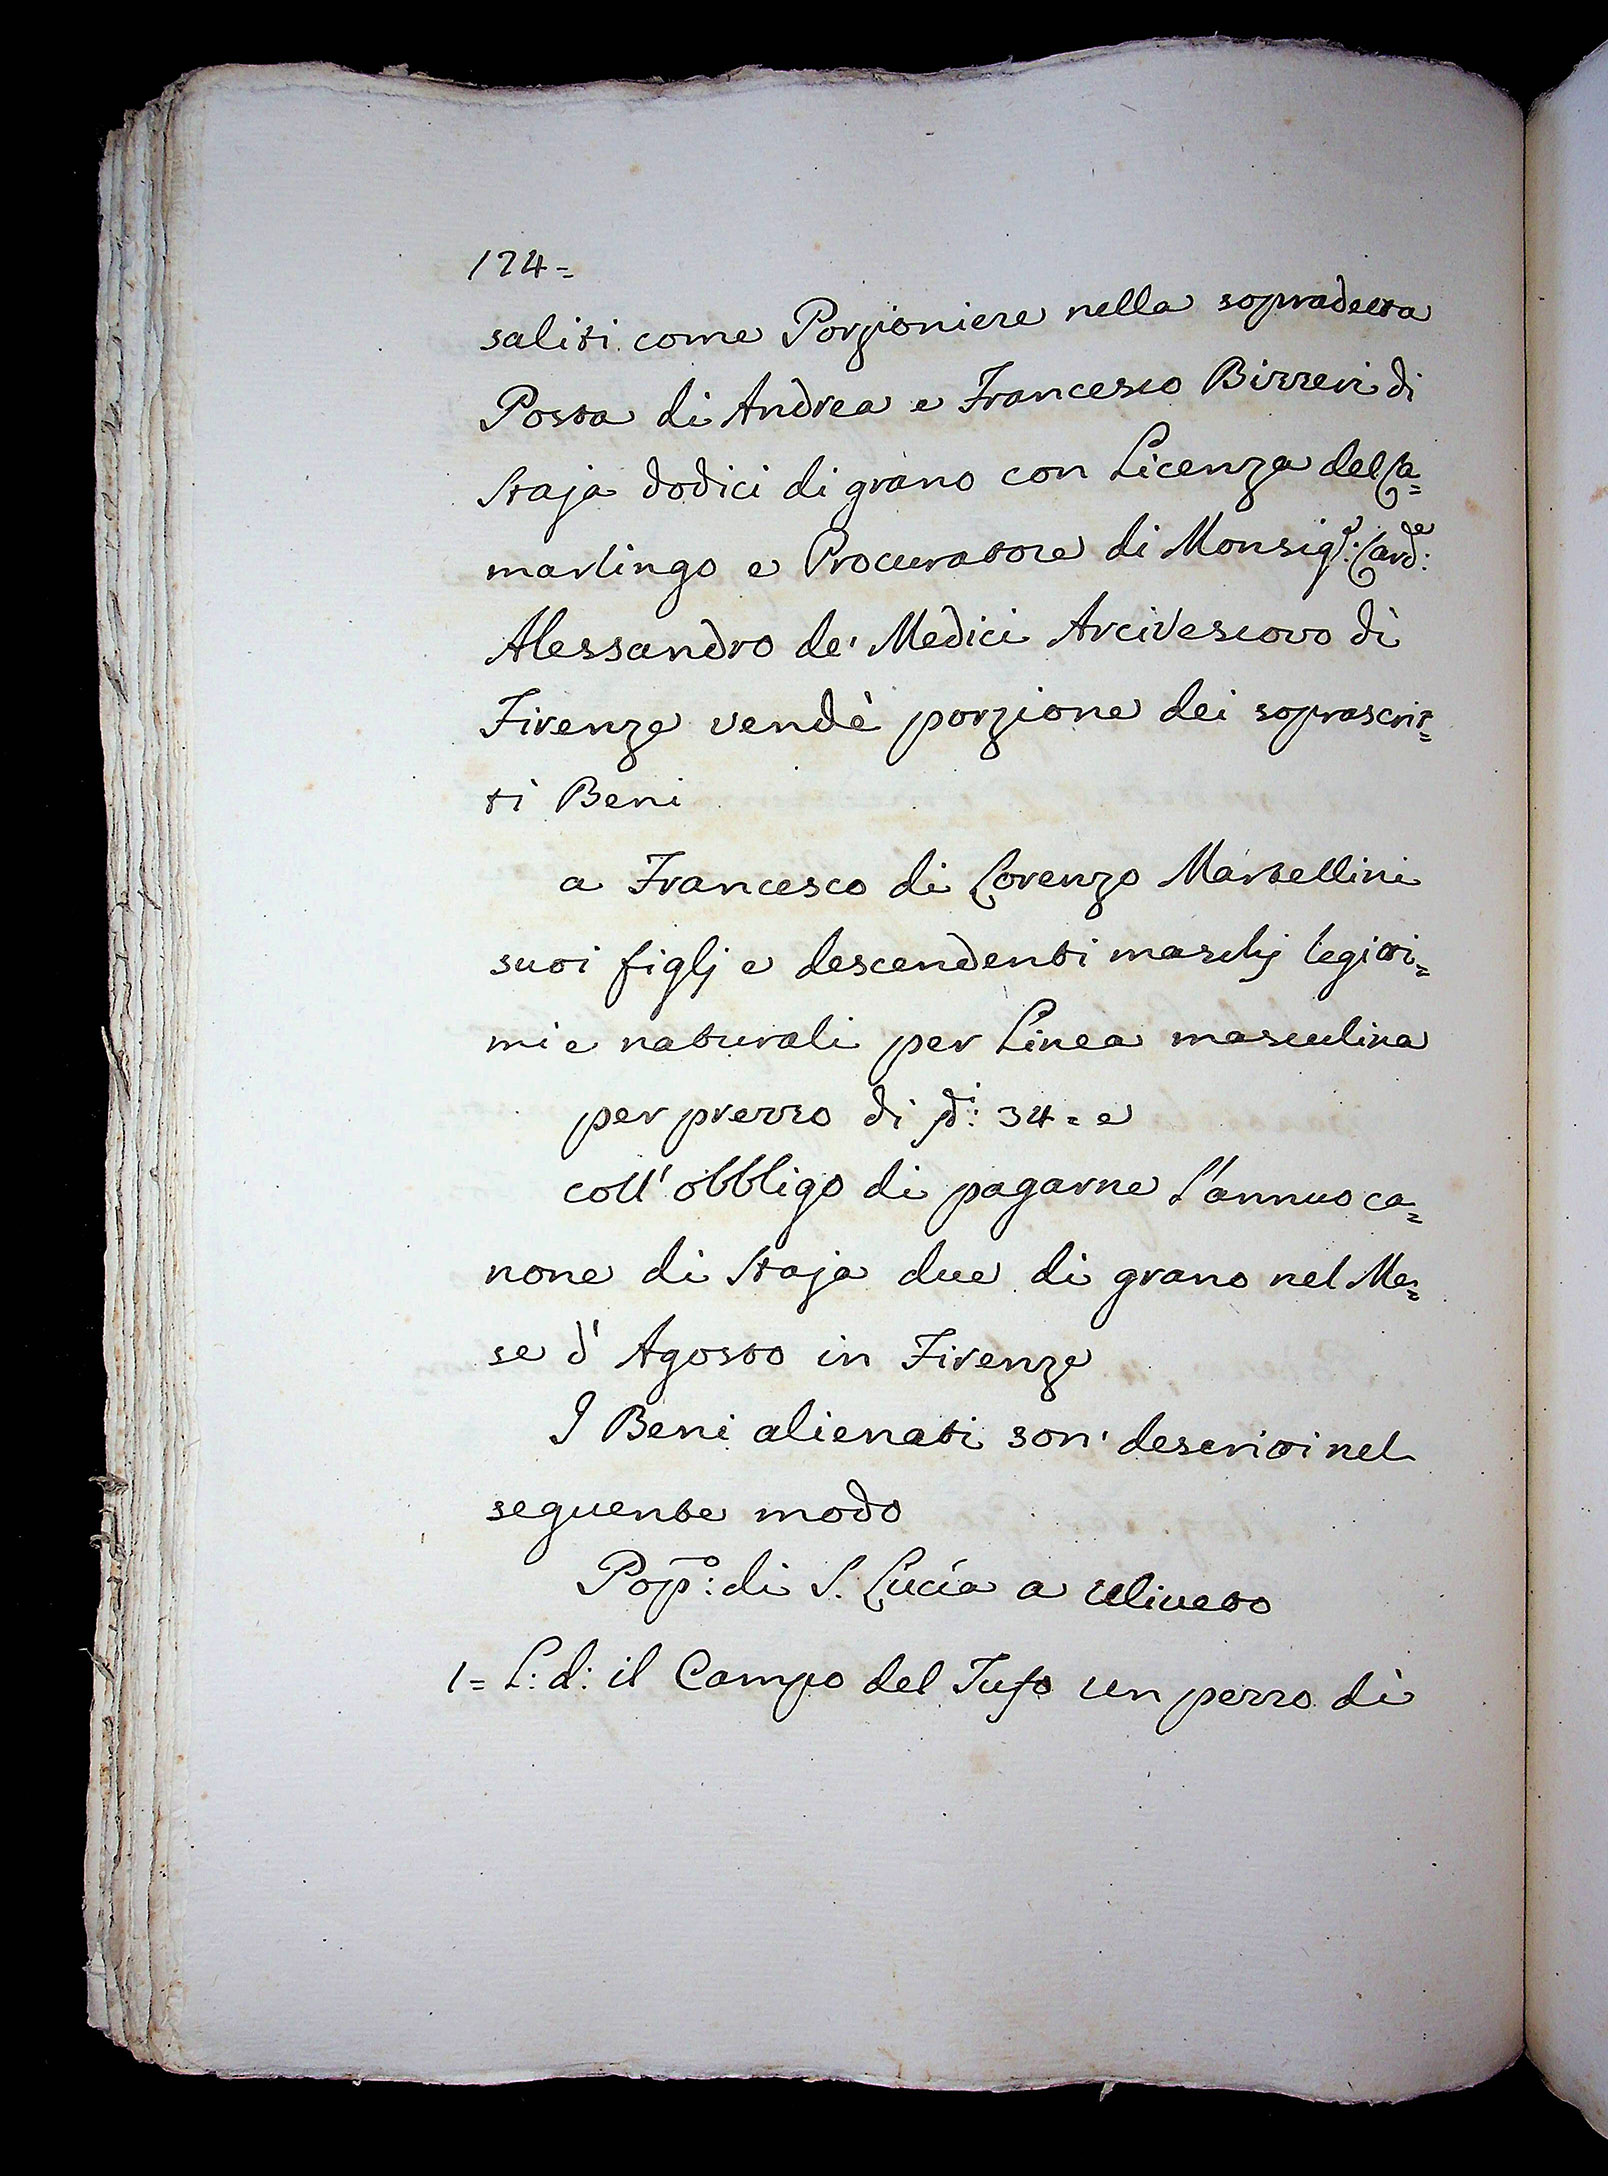 124=
saliti come Porzioniere nella sopradetta
Posta di Andrea e Francesco Bizzeri di
Staja dodici di grano con Licenza del Ca=
marlingo e Procuratore di Monsig.r: Card.le:
Alessandro de' Medici Arcivescovo di
Firenze vendè porzione dei soprascrit=
ti Beni
a Francesco di Lorenzo Martellini
suoi figlj e descendenti maschj legitti=
mi e naturali per Linea masculina
per prezzo di di: 34= e
coll' obbligo di pagarne l'annuo ca=
none di Staja due di grano nel Me=
se d' Agosto in Firenze
I Beni alienati son' descritti nel
seguente modo
Pop.o: di S. Lucia a Uliveto
1= L: d: il Campo del Tufo un pezzo di